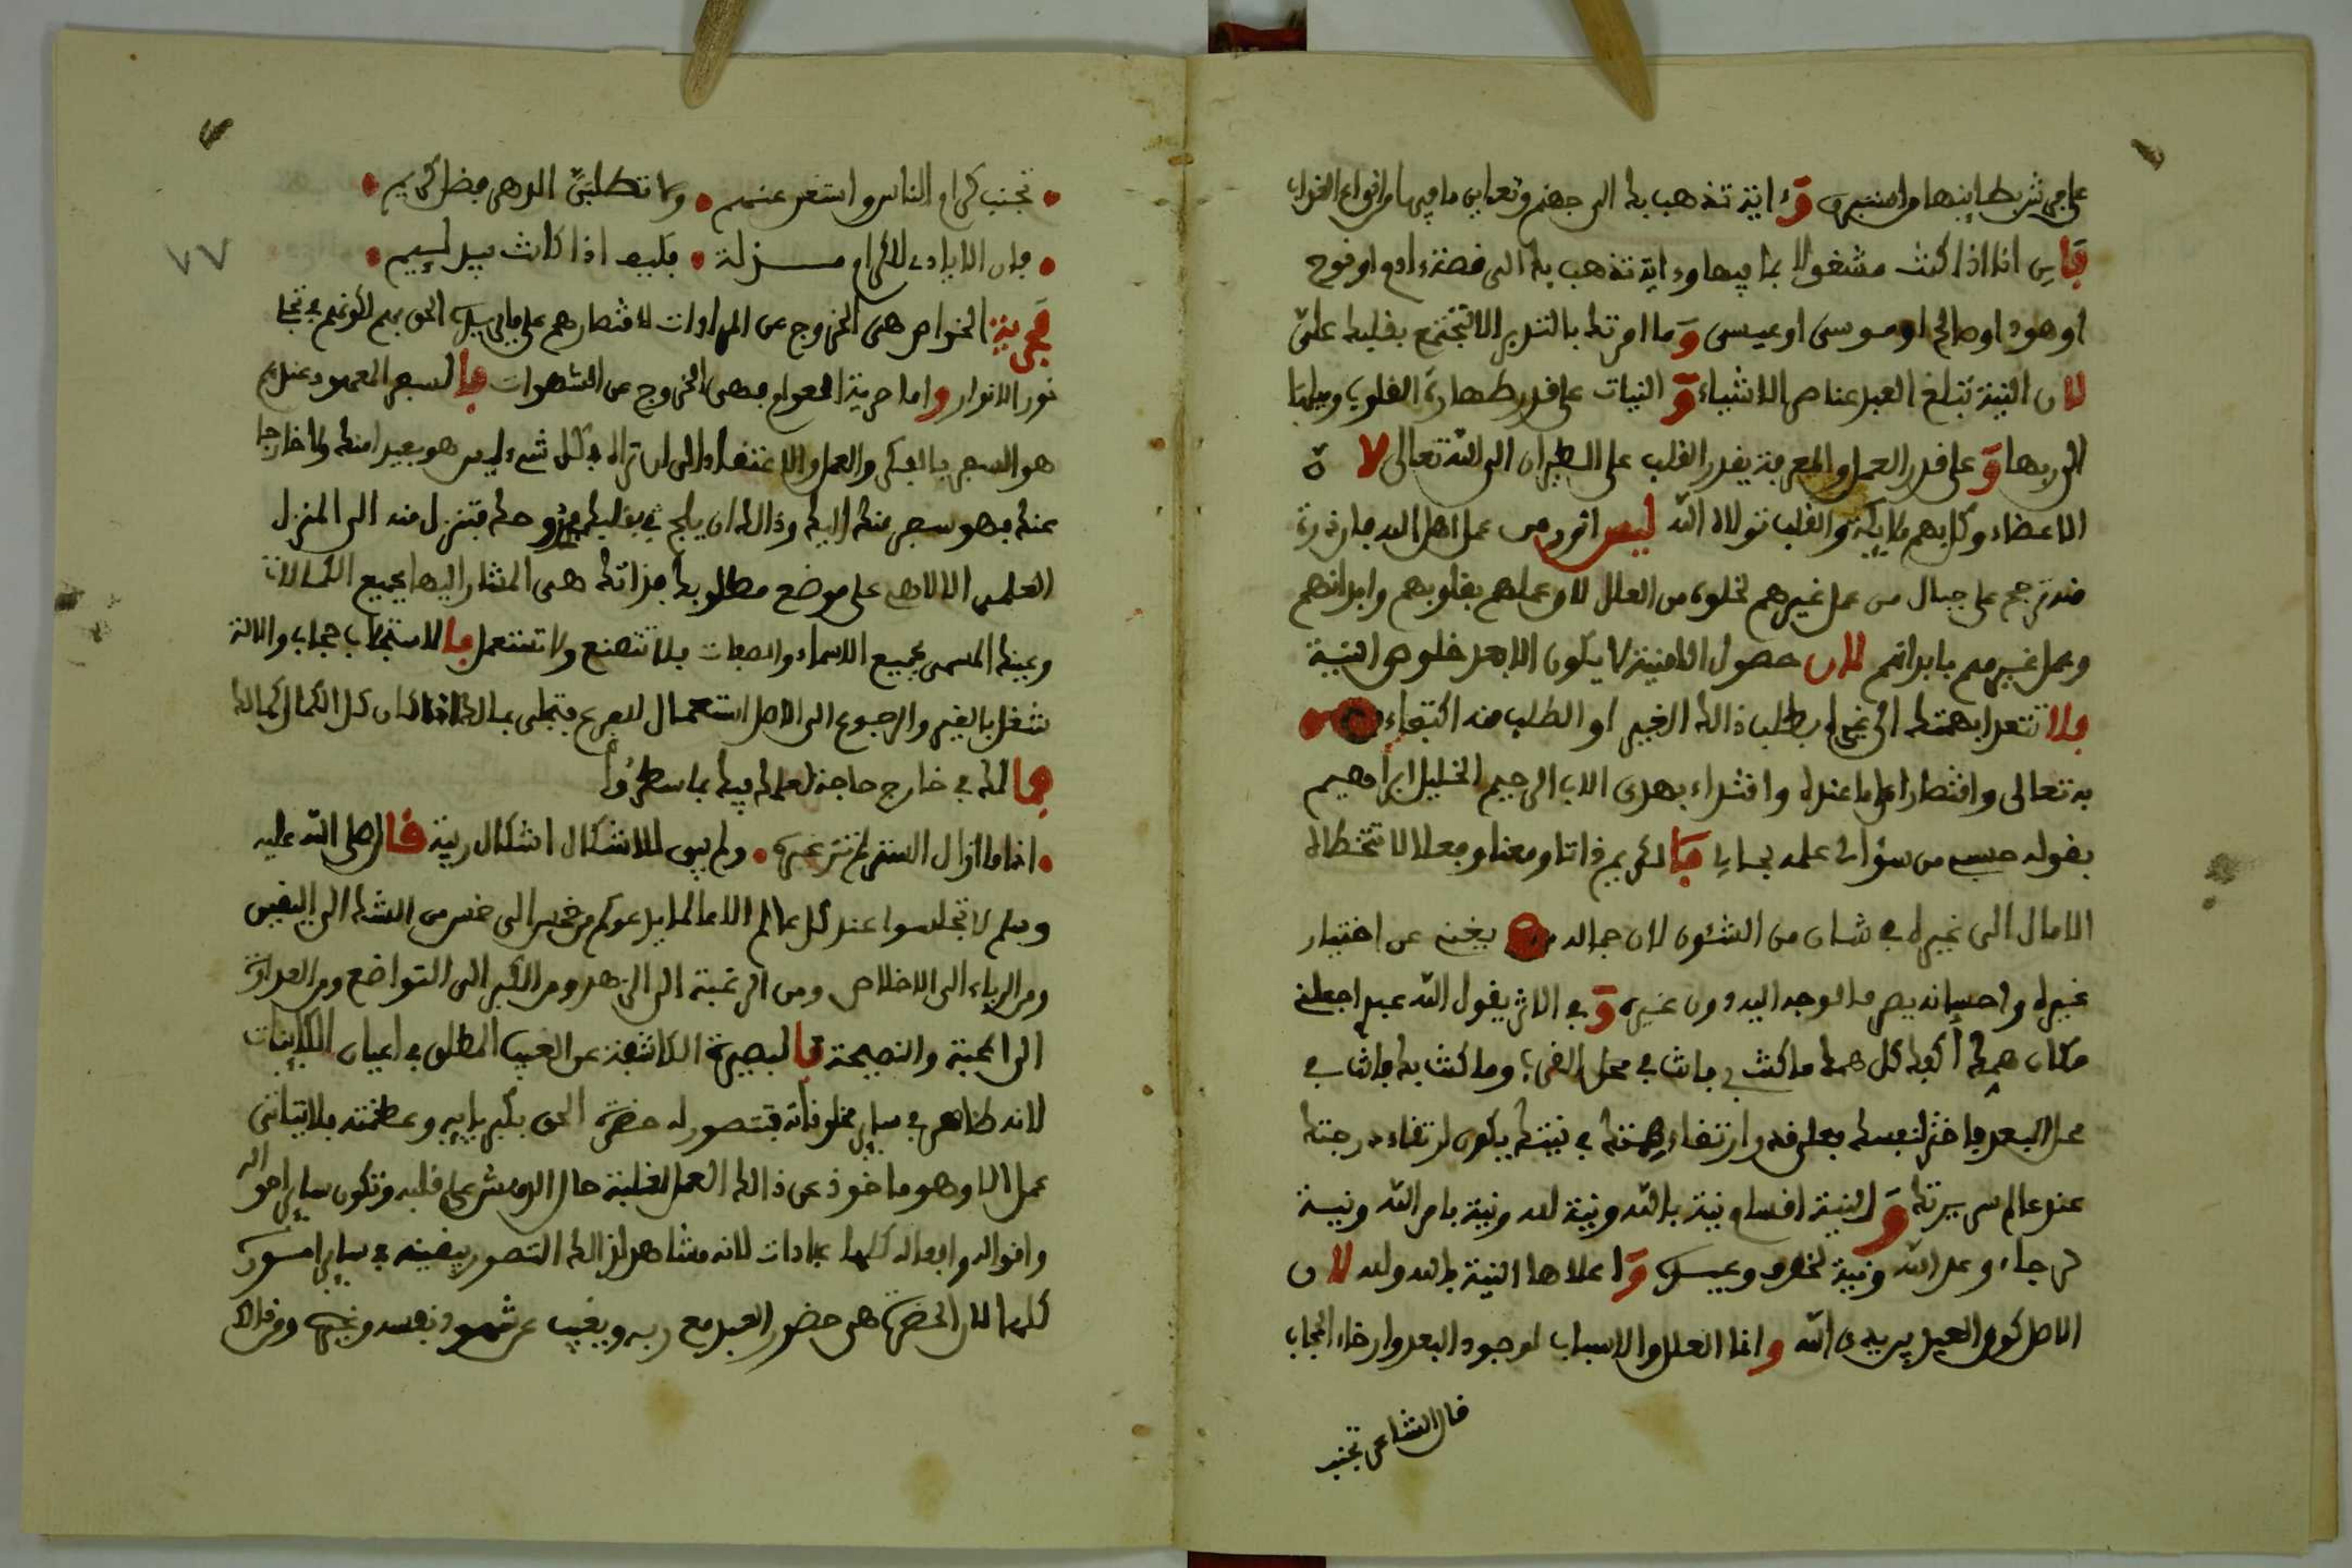 على من شربها منها وامنيتي وءاية تذهب به الى جهنم وتعاين ما فيها من انواع
فاين انا اذا كنت مشغولا بما فيها وءاية تذهب به الى قصة ءادم او نوح
او هود او صالح او موسى او عيسى وما امرتك بالتدبر الا لتجتمع بقلبك علي
لان النية تبلغ العبد عناصر الاشياء والنيات على قدر طهارة القلوب وميلها
الى ربها وعلى قدر العمل والمعرفة يقدر القلب على الطيران الى الله تعالى لان
الاعضاء وكل بهم ملايكة والقلب تولاه الله ليس من عمل اهل الله فان ذرة
منه ترجح على جبال من عمل غيرهم لخلوه من العلل لان عملهم بقلوبهم وابدانهم
وعمل غيرهم بابدانهم لان حصول الامنية لا يكون الا بعد خلوص النية
فلا تتعدا بهمتك الى غيره بطلب ذالك الغير او الطلب منه اكتفاء
به تعالى واقتصارا على ما عنده واقتداء بهدى الاب الرحيم الخليل ابراهيم
بقوله حسبي من سؤالي علمه بحالي فالكريم ذاتا ومعنا وفعلا لا تتخطاه
الامال الى غيره في شان من الشئون لان جماله يغني عن اختيار
غيره واحسانه يصرف الوجه اليه دون غيره وفي الاثر يقول الله عبدي اجعلني
مكان همك أكفك كل همك ما كنت بي فانت في محل القرب وما كنت بك فانت في
محل البعد فاختر لنفسك فعلى قدر ارتفاع همتك في نيتك يكون ارتفاع درجتك
عند عالم سريرتك والنية اقسام نية بالله ونية لله ونية بامر الله ونية
لرجاء وعد الله ونية لخوف وعيده واعلاها النية بالله ولله لان
الاصل كون العبد بين يدي الله وانما العلل والاسباب لوجود البعد وارخاء الحجاب
قال الشاعر تجنب
تجنب كرام الناس واستغن عنهم ولا تطلبنّ الدهر فضل كريم
فان الايادي للكرام مزلة فكيف اذا كانت بيد لئيم
فحرية الخواص هى الخروج عن المرادات لاقتصارهم على ما يريد الحق بهم لكونهم في تجلى
نور الانوار واما حرية العوام فهي الخروج عن الشهوات فالسفر المعهود عندهم
هو السفر بالفكر والعمل والاعتقاد الى ان تراه في كل شيء ليس هو بعيدا منك ولا خارجا
عنك فهو سفر منك اليك وذالك ان يلج في بقلبك وحك فتنزل منه الى المنزل
العلمي الالاهي على موضع مطلوبك فذاتك هى المشار اليها بجميع الكمالات
وعينك المسمى بجميع الاسماء والصفات فلا تتصنع ولا تستعمل فالاستجلاب حجاب والالة
شغل بالغير والرجوع الى الاصل استعمال للفرع فتجلى بمالك كان كل الكمال كمالك
فمالك في خارج حاجة لعلمك فيك بما سطروا
اذا ما ازال الستر لم تر غيره ولم يبق للاشكال اشكال ريبة قال صلى الله عليه
وسلم لا تجلسوا عند كل عالم الا عالما يدعوكم من خمس الى خمس من الشك الى اليقين
ومن الرياء الى الاخلاص ومن الرغبة الى الزهد ومن الكبر الى التواضع ومن العداوة
الى المحبة والنصيحة فالبصيرة الكاشفة عن الغيب المطلق في اعيان الكاينات
لانه ظاهر في ساير مخلوقاته فتتصور له حضرة الحق بكبريايه وعظمته فلا يتاتى
عمل الا وهو ماخوذ عن ذالك العمل لغلبة حال الدهش على قلبه وتكون ساير احواله
واقواله وافعاله كلها عبادات لانه مشاهد لذالك التصور بيقينه في ساير امسوره
كلها لان الحضرة هى حضور العبد مع ربه ويغيب عن شهود نفسه وغيره